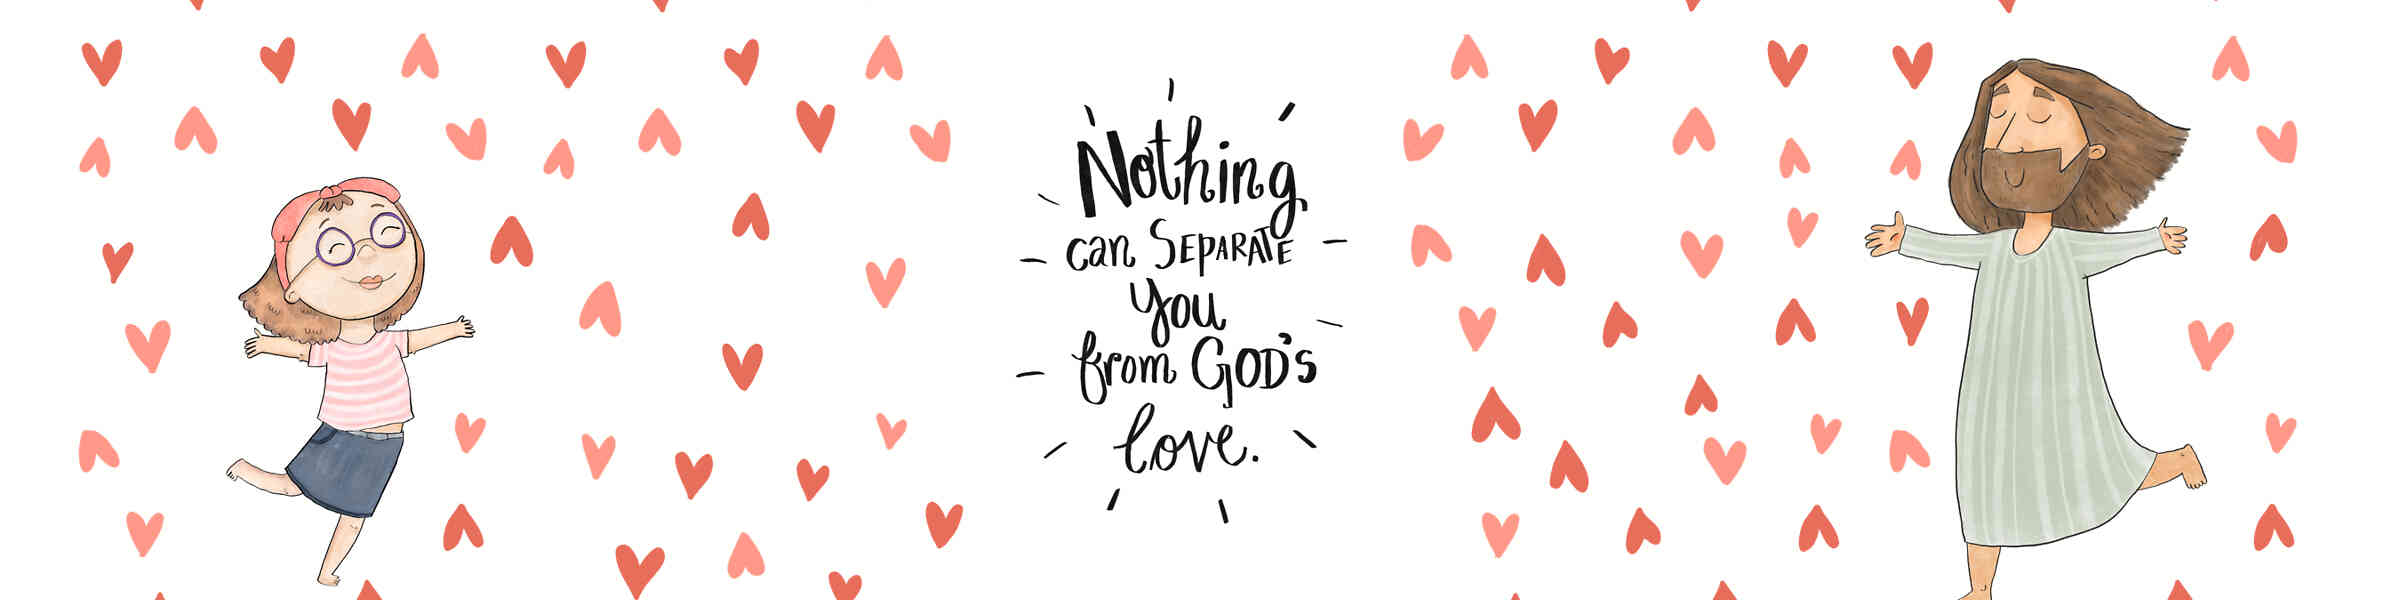 Nothing
can SEPARATE
you
from GOD'S
love.